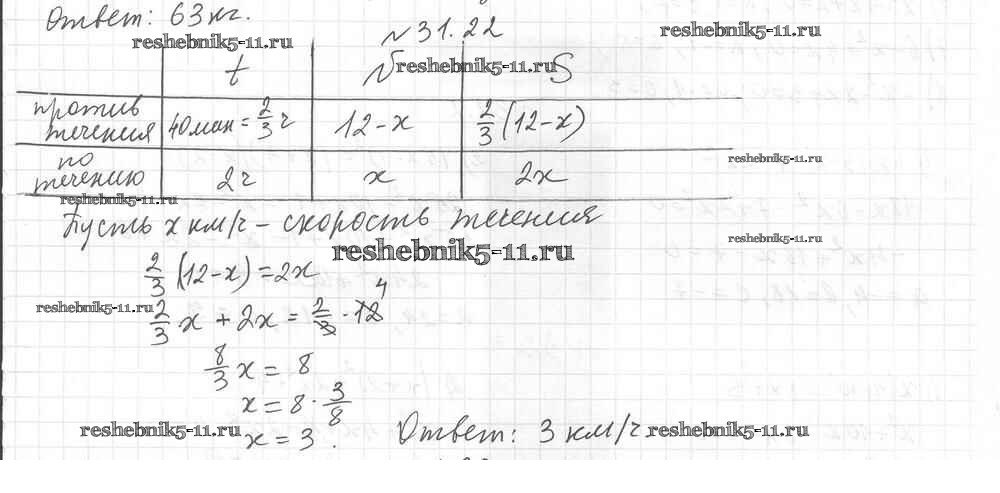 Ответ: 63 кг.
№31.22
reshebnik5-11.ru
reshebnik5-11.ru
t v reshebnik5-11.ru S
против течения 40мин = 2/3 ч 12-x 2/3 (12-x)
reshebnik5-11.ru
по течению 2ч x 2x
reshebnik5-11.ru
Пусть x км/ч - скорость течения
reshebnik5-11.ru
reshebnik5-11.ru
2/3 (12-x) = 2x
reshebnik5-11.ru
2/3 x + 2x = 2/3 · 12 4
8/3 x = 8
x = 8 · 3/8
reshebnik5-11.ru x = 3. Ответ: 3 км/ч. reshebnik5-11.ru